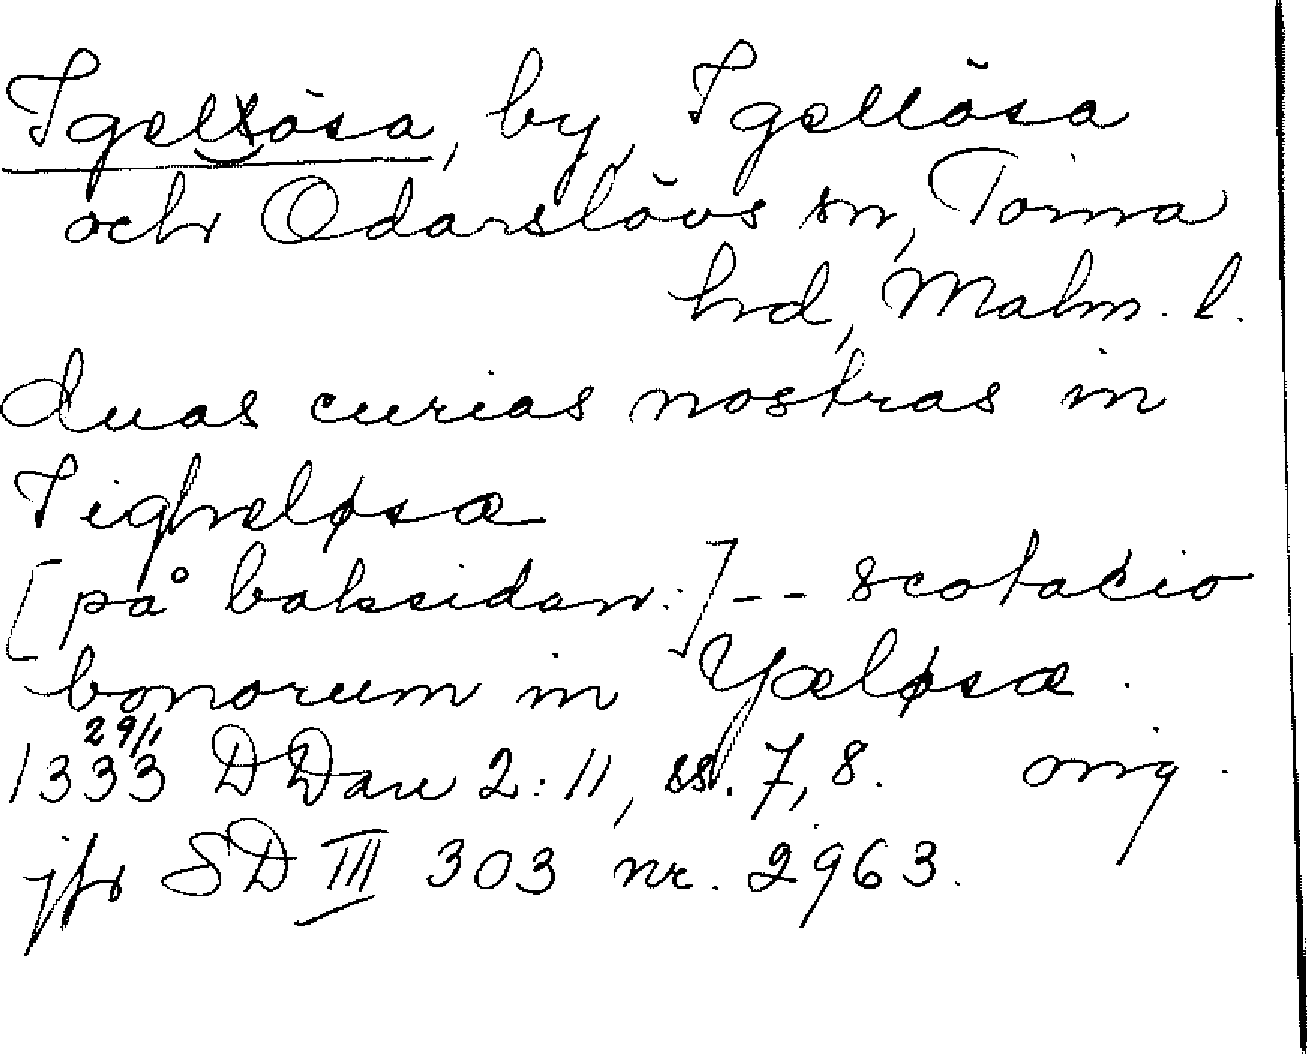 Igelösa, by, Igellösa
och Odarslövs sn, Torna
hd, Malm. l.
duas curias nostras in
Iighæløsæ
[på baksidan:] -- scotacio
bonorum in Yæløsæ.
29/1
1333 DDan 2:11, ss. 7, 8. orig.
jfr SD III 303 nr. 2963.